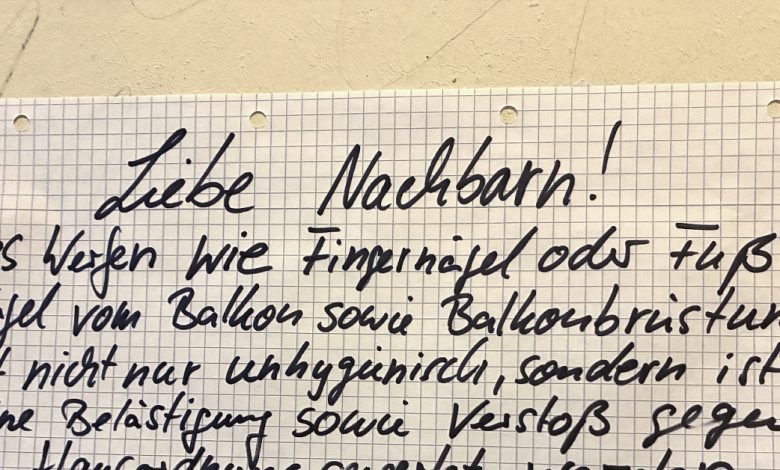 Liebe Nachbarn!
s Werfen wie Fingernägel oder Fuß
gel vom Balkon sowie Balkonbrüstun
t nicht nur unhygienisch, sondern ist
ne Belästigung sowie Verstoß gegen
Hausordnung